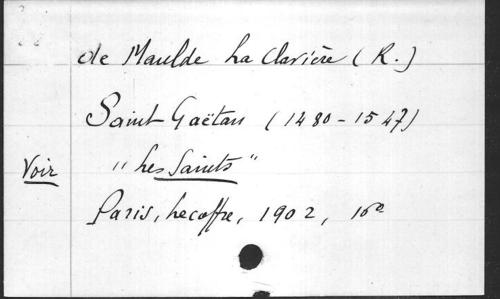 de Maulde La Clavière (R.)
Saint Gaëtan (1480-1547)
Voir "Les Saints"
Paris, Lecoffre, 1902, 16º